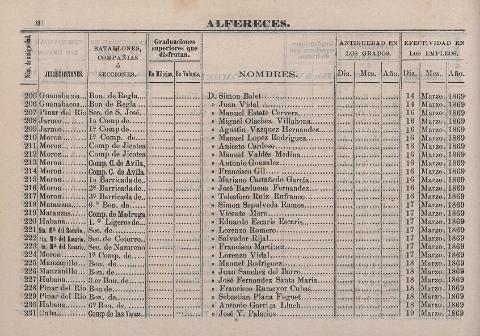 ALFERECES.
Núm. de antigüedad.
JURISDICCIONES.
BATALLONES, COMPAÑIAS ó SECCIONES.
Graduaciones superiores que disfrutan.
En Milicias. En Volunts.
NOMBRES.
ANTIGUEDAD EN LOS GRADOS.
Dia. Mes. Año.
EFECTIVIDAD EN LOS EMPLEOS.
Dia. Mes. Año.
205 Guanabacoa Bon. de Regla D. Simon Bolet 14 Marzo. 1869
206 Guanabacoa Bon de Regla » Juan Vidal 14 Marzo. 1869
207 Pinar del Rio Sec. de S. José » Manuel Estate Cervera 16 Marzo. 1869
208 Jaruco 1a Comp de » Miguel Olachea Villahona 16 Marzo. 1869
209 Jaruco 1º Comp de » Agustin Vazquez Hernandez 16 Marzo. 1869
210 Moron 1º Comp. de » Manuel Lopez Rodriguez 16 Marzo. 1869
211 Moron Comp de Jicotea » Aniceto Cardoso 16 Marzo. 1869
212 Moron Comp de Jicotea » Manuel Valdés Medina 16 Marzo. 1869
213 Moron Comp. C. de Avila » Antonio Gonzalez 16 Marzo. 1869
214 Moron Comp. C. de Avila » Francisco Gil 16 Marzo. 1869
215 Moron 1a Barricada de » Mariano Castañedo García 16 Marzo. 1869
216 Moron 2ª Barricada de » José Barducas Fernandez 16 Marzo. 1869
217 Moron 3ª Barricada de » Telesforo Ruiz Rufranco 16 Marzo. 1869
218 Matanzas 6.º Bon. d » Simon Sepulveda Ramos 17 Marzo. 1869
219 Matanzas Comp. de Madruga » Vicente Moro 17 Marzo. 1869
220 Habana 1.º Ligeros de » Eduardo Escaris Escaris 17 Marzo. 1869
221 Sta. Mª del Rosario Sec. de » Lorenzo Romero 17 Marzo. 1869
222 Sta. Mª del Rosario Sec. de Cotorro » Salvador Rijal 17 Marzo. 1869
223 Sta. Mª del Rosario Sec. de Nazareno » Francisco Martinez 17 Marzo. 1869
224 Moron 1º Comp. de » Lorenzo Vidal 17 Marzo. 1869
225 Manzanillo Bon. de » Manuel Rodriguez 18 Marzo. 1869
226 Manzanillo Bon. de » Juan Sanchez del Barro 18 Marzo. 1869
227 Habana 3.er Bon. de » José Fernandez Santa Maria 18 Marzo. 1869
228 Pinar del Rio Bon. de » Francisco Ranayor Cubas 18 Marzo. 1869
229 Pinar del Rio Bon. de » Sebastian Plana Fuguet 18 Marzo. 1869
230 Habana 6º Bon. de » Antonio Garriga Lluch 18 Marzo. 1869
231 Cuba Comp de las Yaras » José Y. Palacios 19 Marzo. 1869